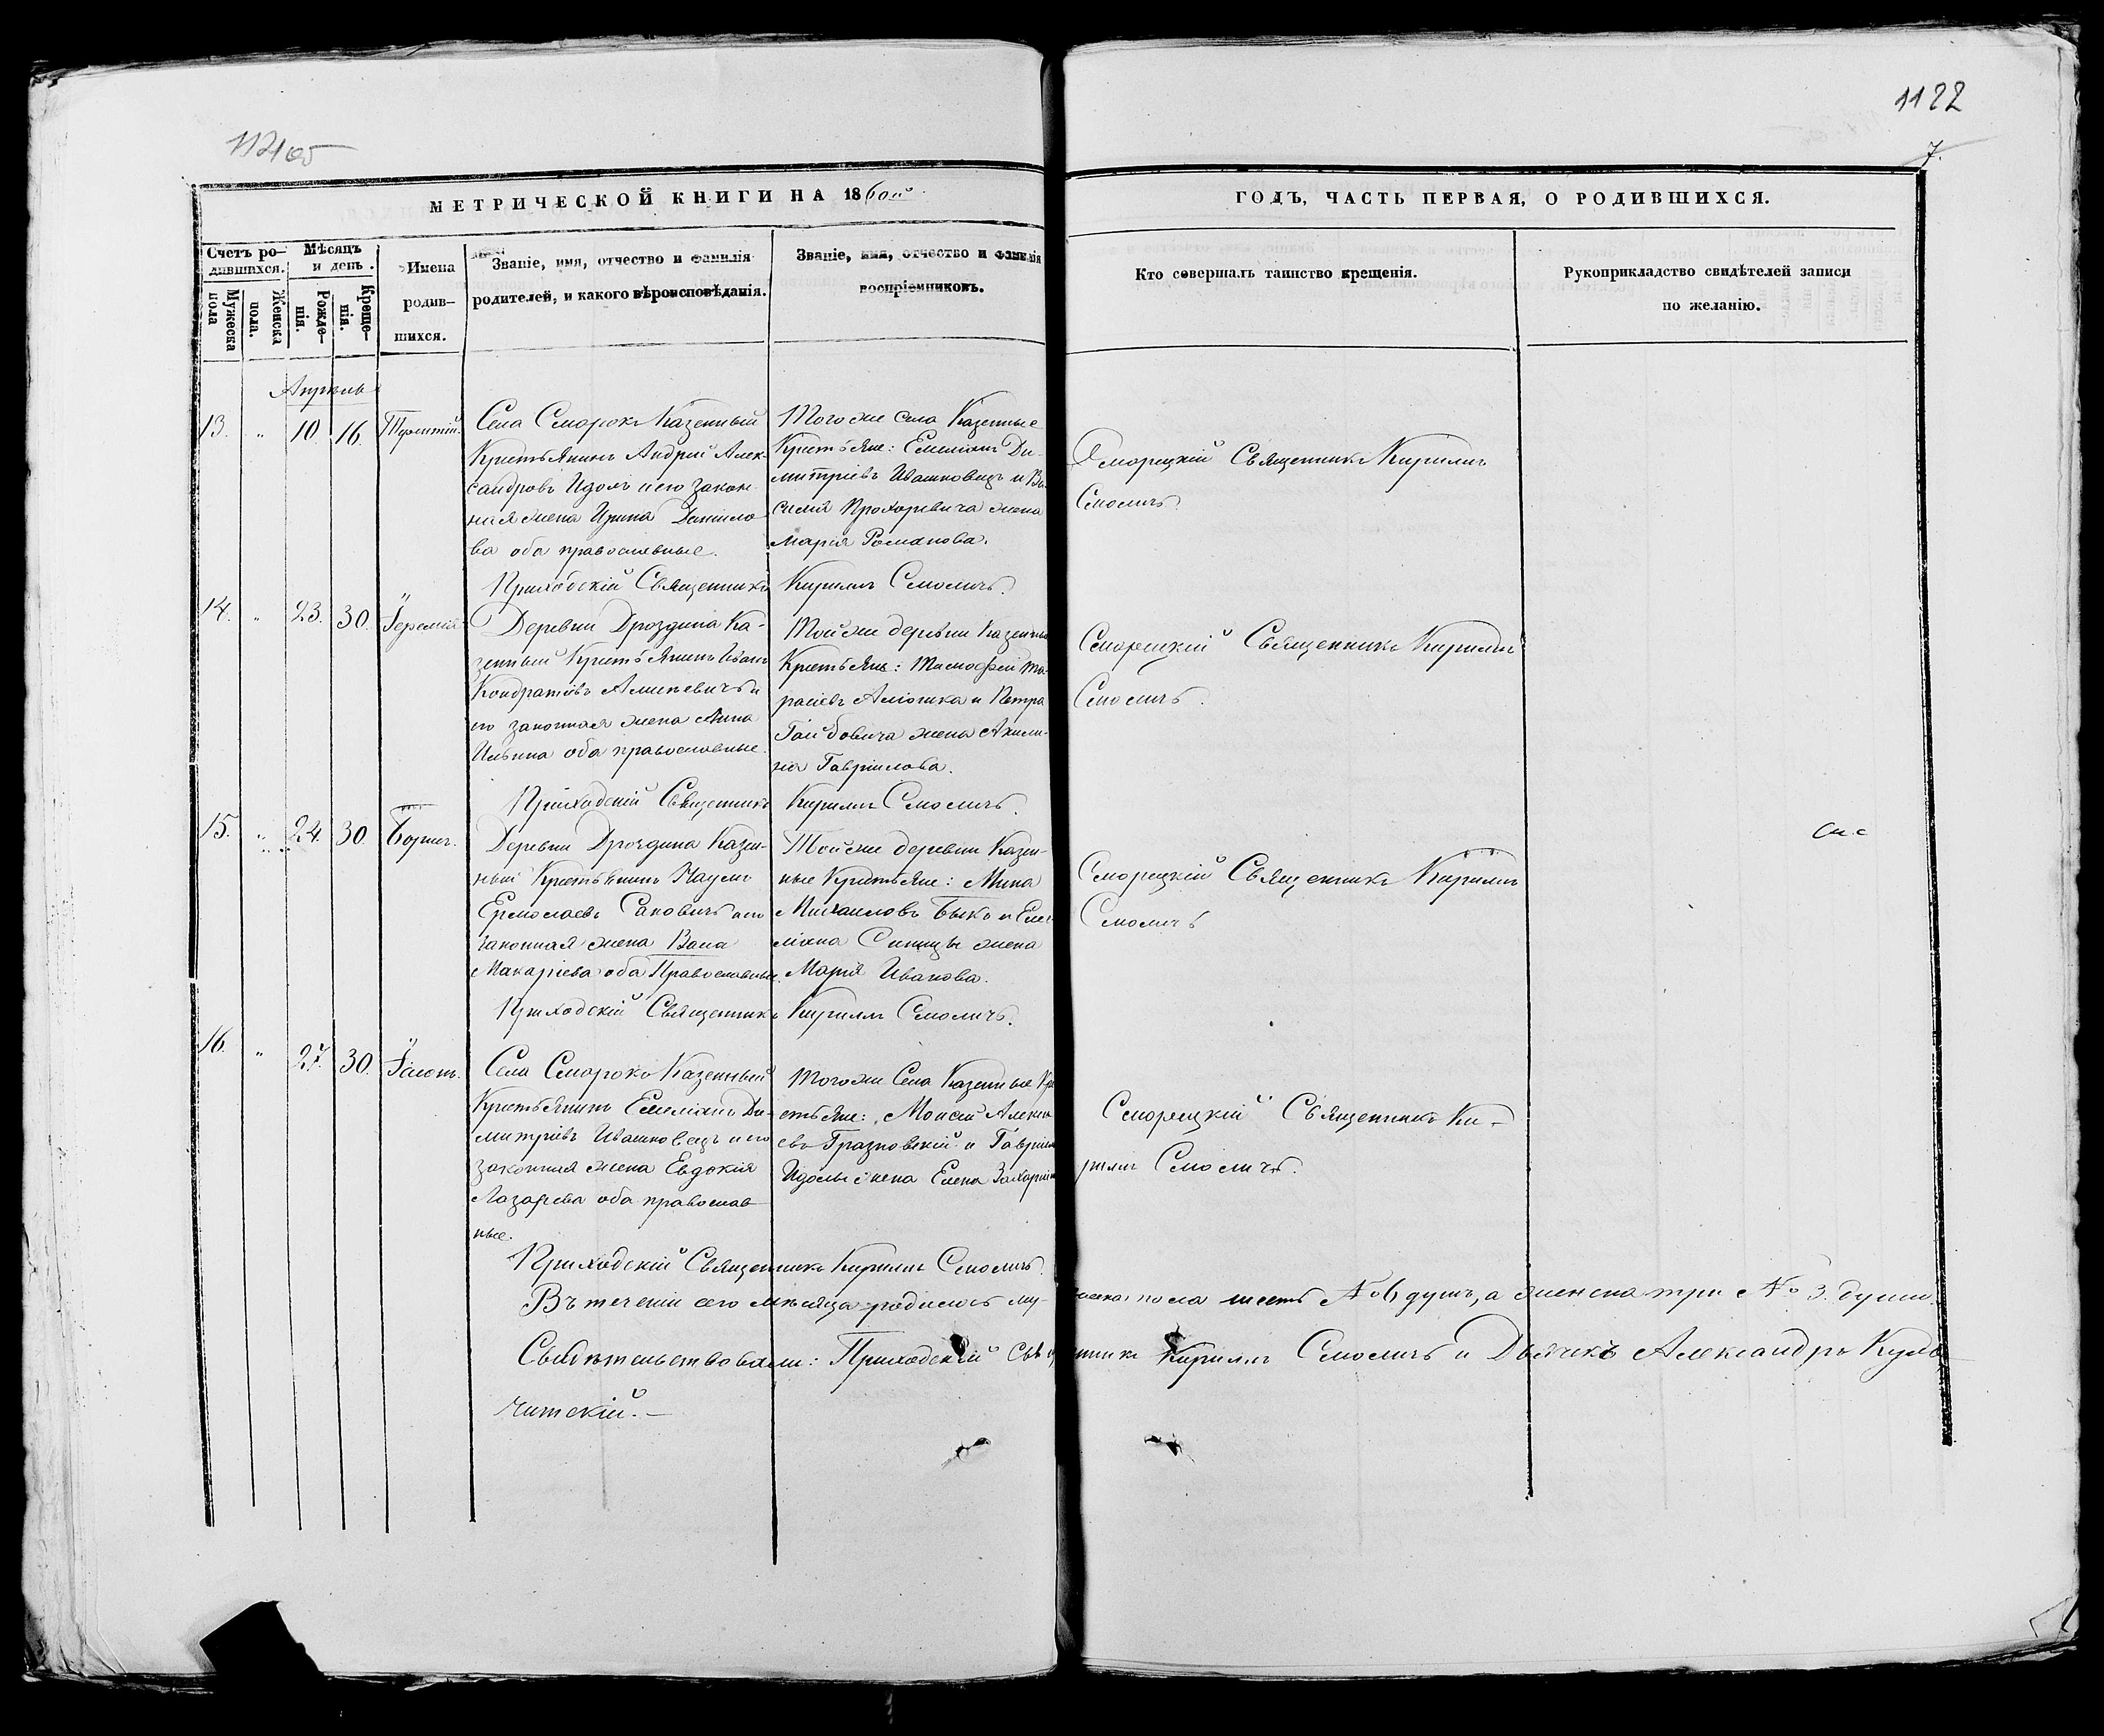 1122
7.
МЕТРИЧЕСКОЙ КНИГИ НА 1860й
ГОДЪ, ЧАСТЬ ПЕРВАЯ, О РОДИВШИХСЯ.
Счетъ ро-
дившихся.
Мужеска
пола
Женска
пола.
Мѣсяцъ
и день.
Рожде-
нія.
Креще-
нія.
Имена
родив-
шихся.
Званіе, имя, отчество и фамилія
родителей, и какого вѣроисповѣданія.
Званіе, имя, отчество и фамилія
воспріемниковъ.
Кто совершалъ таинство крещенія.
Рукоприкладство свидѣтелей записи
по желанію.
Апрѣль
13. " 10. 16.
Села Сморокъ Казенный
Крестьянинъ Андрей Алек-
сандровъ Идолъ и его закон-
ная жена Ирина Данило-
ва оба православные.
Тогоже села Казенные
Крестьяне: Емеліанъ Ди-
митріевъ Ивашковецъ и Ва-
силія Прохоревича жена
Марія Романова.
Сморецкій Священникъ Кириллъ
Смоличъ
Приходскій Священникъ Кириллъ Смоличъ.
14. " 23. 30. Іеремія
Деревни Дроздина Ка-
зенный Крестьянинъ Иванъ
Кондратіевъ Алиневичъ и
его законная жена Анна
Ильина оба православные.
Тойже деревни Казенные
Крестьяне: Тимофей Та-
расіевъ Аліошка и Петра
Гайбовича жена Акили-
на Гавріилова.
Сморецкій Священникъ Кириллъ
Смоличъ.
Приходскій Священникъ Кириллъ Смоличъ.
15. " 24. 30. Борисъ.
Деревни Дроздина Казен-
ный Крестьянинъ Наумъ
Ермолаевъ Сановичъ и его
законная жена Васа
Макаріева оба Православные.
Тойже деревни Казен-
ные Крестьяне: Мина
Михаиловъ Быкъ и Еме-
ліана Синицы жена
Марія Иванова.
Сморецкій Священникъ Кириллъ
Смоличъ
Приходскій Священникъ Кириллъ Смоличъ.
16. " 27. 30.
Села Сморокъ Казенный
Крестьянинъ Емеліанъ Ди-
митріевъ Ивашковецъ и его
законная жена Евдокія
Лазарева оба православ-
ные.
Тогоже Села Казенные Кре-
стьяне: Моисей Алексі-
евъ Грязновскій и Гавріила
Идолы жена Елена Захаріина
Сморецкій Священникъ Ки-
риллъ Смоличъ.
Приходскій Священникъ Кириллъ Смоличъ.
Въ теченіи сего мѣсяца родилось му-жеска пола шесть № 6 душъ, а женска три № 3. души.
Свидѣтельствовали: Приходскій Священникъ Кириллъ Смоличъ и Дьячекъ Александръ Куль-
читскій.—